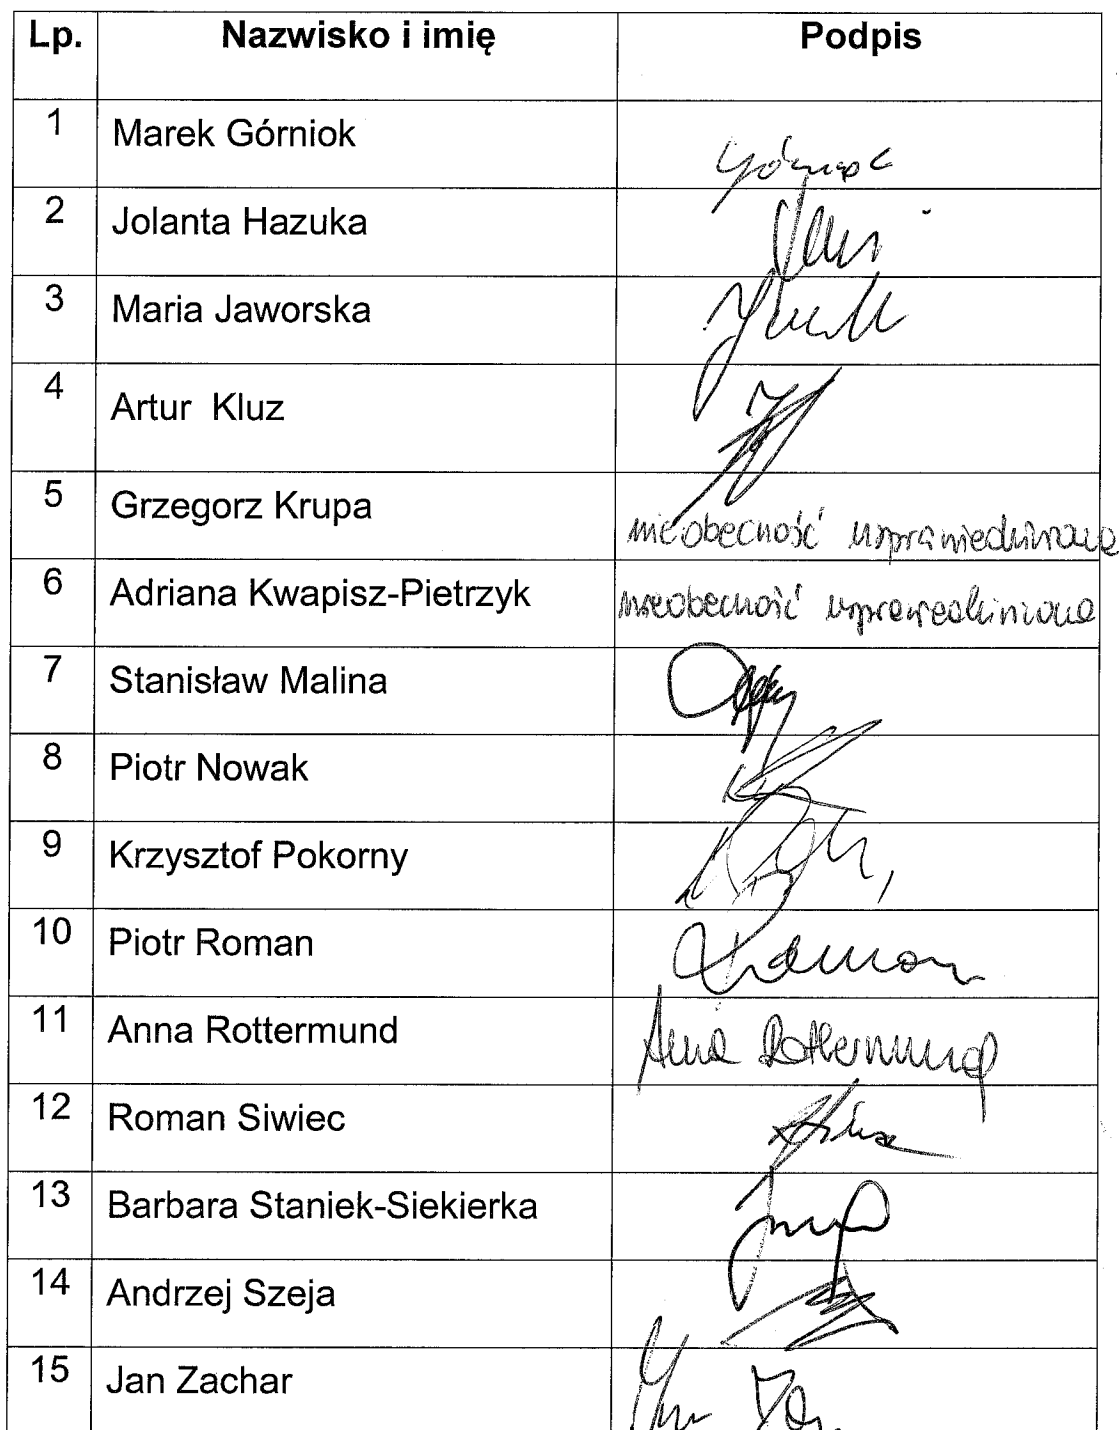 Lp. Nazwisko i imię Podpis
1 Marek Górniok
2 Jolanta Hazuka
3 Maria Jaworska
4 Artur Kluz
5 Grzegorz Krupa nieobecność usprawiedliwiona
6 Adriana Kwapisz-Pietrzyk nieobecność usprawiedliwiona
7 Stanisław Malina
8 Piotr Nowak
9 Krzysztof Pokorny
10 Piotr Roman Roman
11 Anna Rottermund Anna Rottermund
12 Roman Siwiec
13 Barbara Staniek-Siekierka
14 Andrzej Szeja
15 Jan Zachar